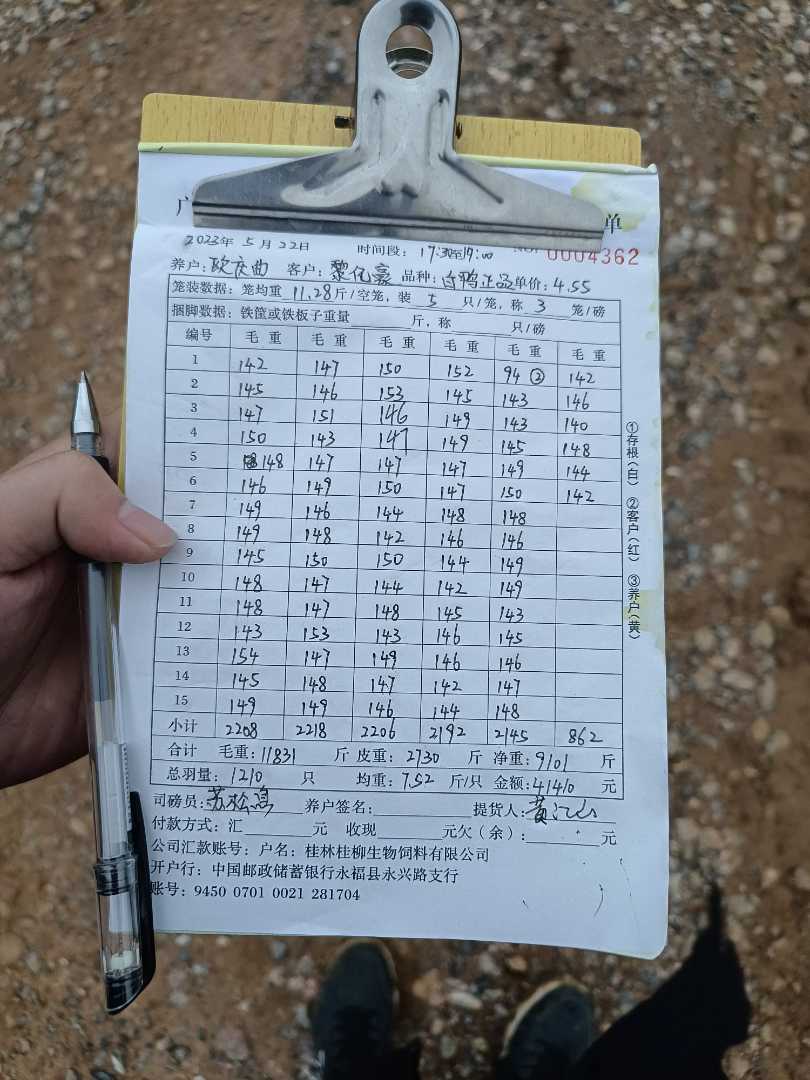 广 单
2023年 5月 22日 时间段: 17:30至19:00 NO: 0004362
养户: 欧庆由 客户: 黎亿豪 品种: 白鸭正品 单价: 4.55
笼装数据: 笼均重 11.28 斤/空笼, 装 5 只/笼, 称 3 笼/磅
捆脚数据: 铁筐或铁板子重量 斤, 称 只/磅
编号 毛重 毛重 毛重 毛重 毛重 毛重
1 142 147 150 152 94 ② 142
2 145 146 153 145 143 146
3 147 151 146 149 143 140
4 150 143 147 149 145 148
5 148 147 147 147 149 144
6 146 149 150 147 150 142
7 149 146 144 148 148
8 149 148 142 146 146
9 145 150 150 144 149
10 148 147 144 142 149
11 148 147 148 145 143
12 143 153 143 146 145
13 154 147 149 146 146
14 145 148 147 142 147
15 149 149 146 144 148
小计 2208 2218 2206 2192 2145 862
合计 毛重: 11831 斤 皮重: 2730 斤 净重: 9101 斤
总羽量: 1210 只 均重: 7.52 斤/只 金额: 41410 元
司磅员: 苏松 养户签名: 提货人: 黄江
付款方式: 汇 元 收现 元欠(余): 元
公司汇款账号: 户名: 桂林桂柳生物饲料有限公司
开户行: 中国邮政储蓄银行永福县永兴路支行
账号: 9450 0701 0021 281704
①存根(白) ②客户(红) ③养户(黄)